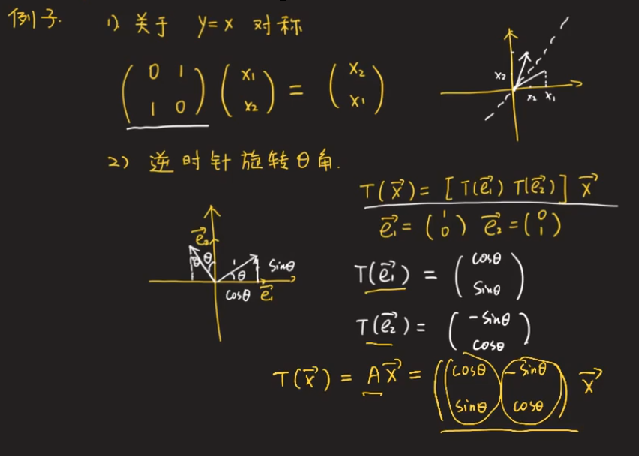 例子. 1) 关于 y=x 对称
(0 1
1 0) (x₁
x₂) = (x₂
x₁)
x₂
x₂ x₁
2) 逆时针旋转θ角.
T(x⃗) = [T(e⃗₁) T(e⃗₂)] x⃗
e⃗₁ = (1
0) e⃗₂ = (0
1)
e⃗₂
θ θ
θ
sinθ
cosθ e⃗₁
T(e⃗₁) = (cosθ
sinθ)
T(e⃗₂) = (-sinθ
cosθ)
T(x⃗) = Ax⃗ = (cosθ -sinθ
sinθ cosθ) x⃗